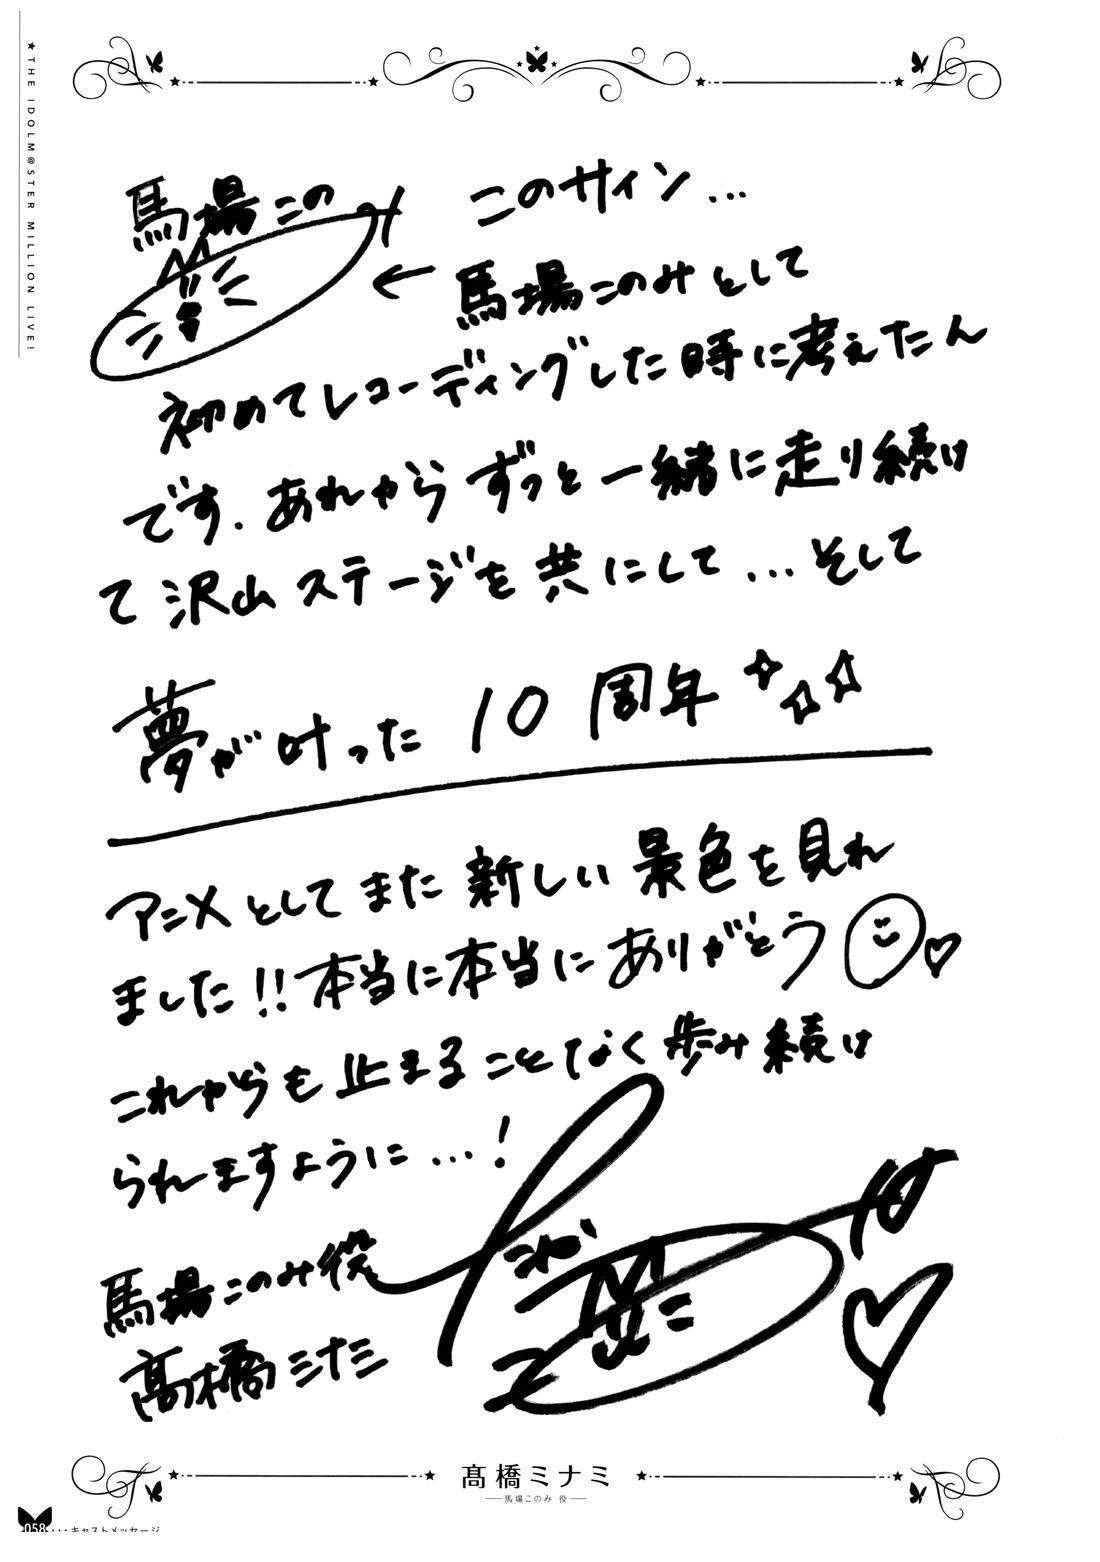 ★THE IDOLM@STER MILLION LIVE!
馬場このみ
このサイン…
←馬場このみとして
初めてレコーディングした時に考えたん
です.あれからずっと一緒に走り続け
て沢山ステージを共にして…そして
夢が叶った10周年
アニメとしてまた新しい景色を見れ
ました!!本当に本当にありがとう
これからも止まることなく歩み続け
られますように…!
馬場このみ役
髙橋ミナミ
髙橋ミナミ
馬場このみ 役
058・・・キャストメッセージ